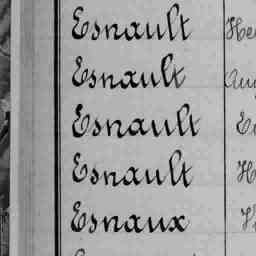 Esnault
Esnault
Esnault
Esnault
Esnaux